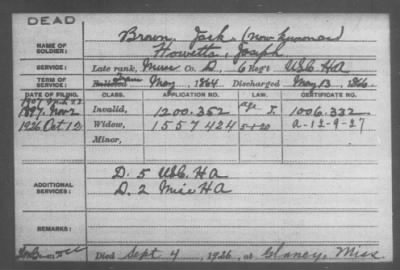 DEAD
Brown, Jack (now known as)
NAME OF SOLDIER: Howette, Joseph
SERVICE: Late rank, Musc Co. D, 6 Reg't U.S.C. H A
TERM OF SERVICE: Enlisted May 1864 Discharged May 13, 1866
DATE OF FILING. CLASS. APPLICATION NO. LAW. CERTIFICATE NO.
1897 Nov 2 Invalid, 1200.352 age I. 1006.332
1926 Oct 12 Widow, 1557424 5-1-20 a-12-9-27
Minor,
ADDITIONAL SERVICES:
D. 5 U.S.C. H A
D. 2 Miss H A
REMARKS:
Died Sept 4, 1926, at Glancy, Miss.